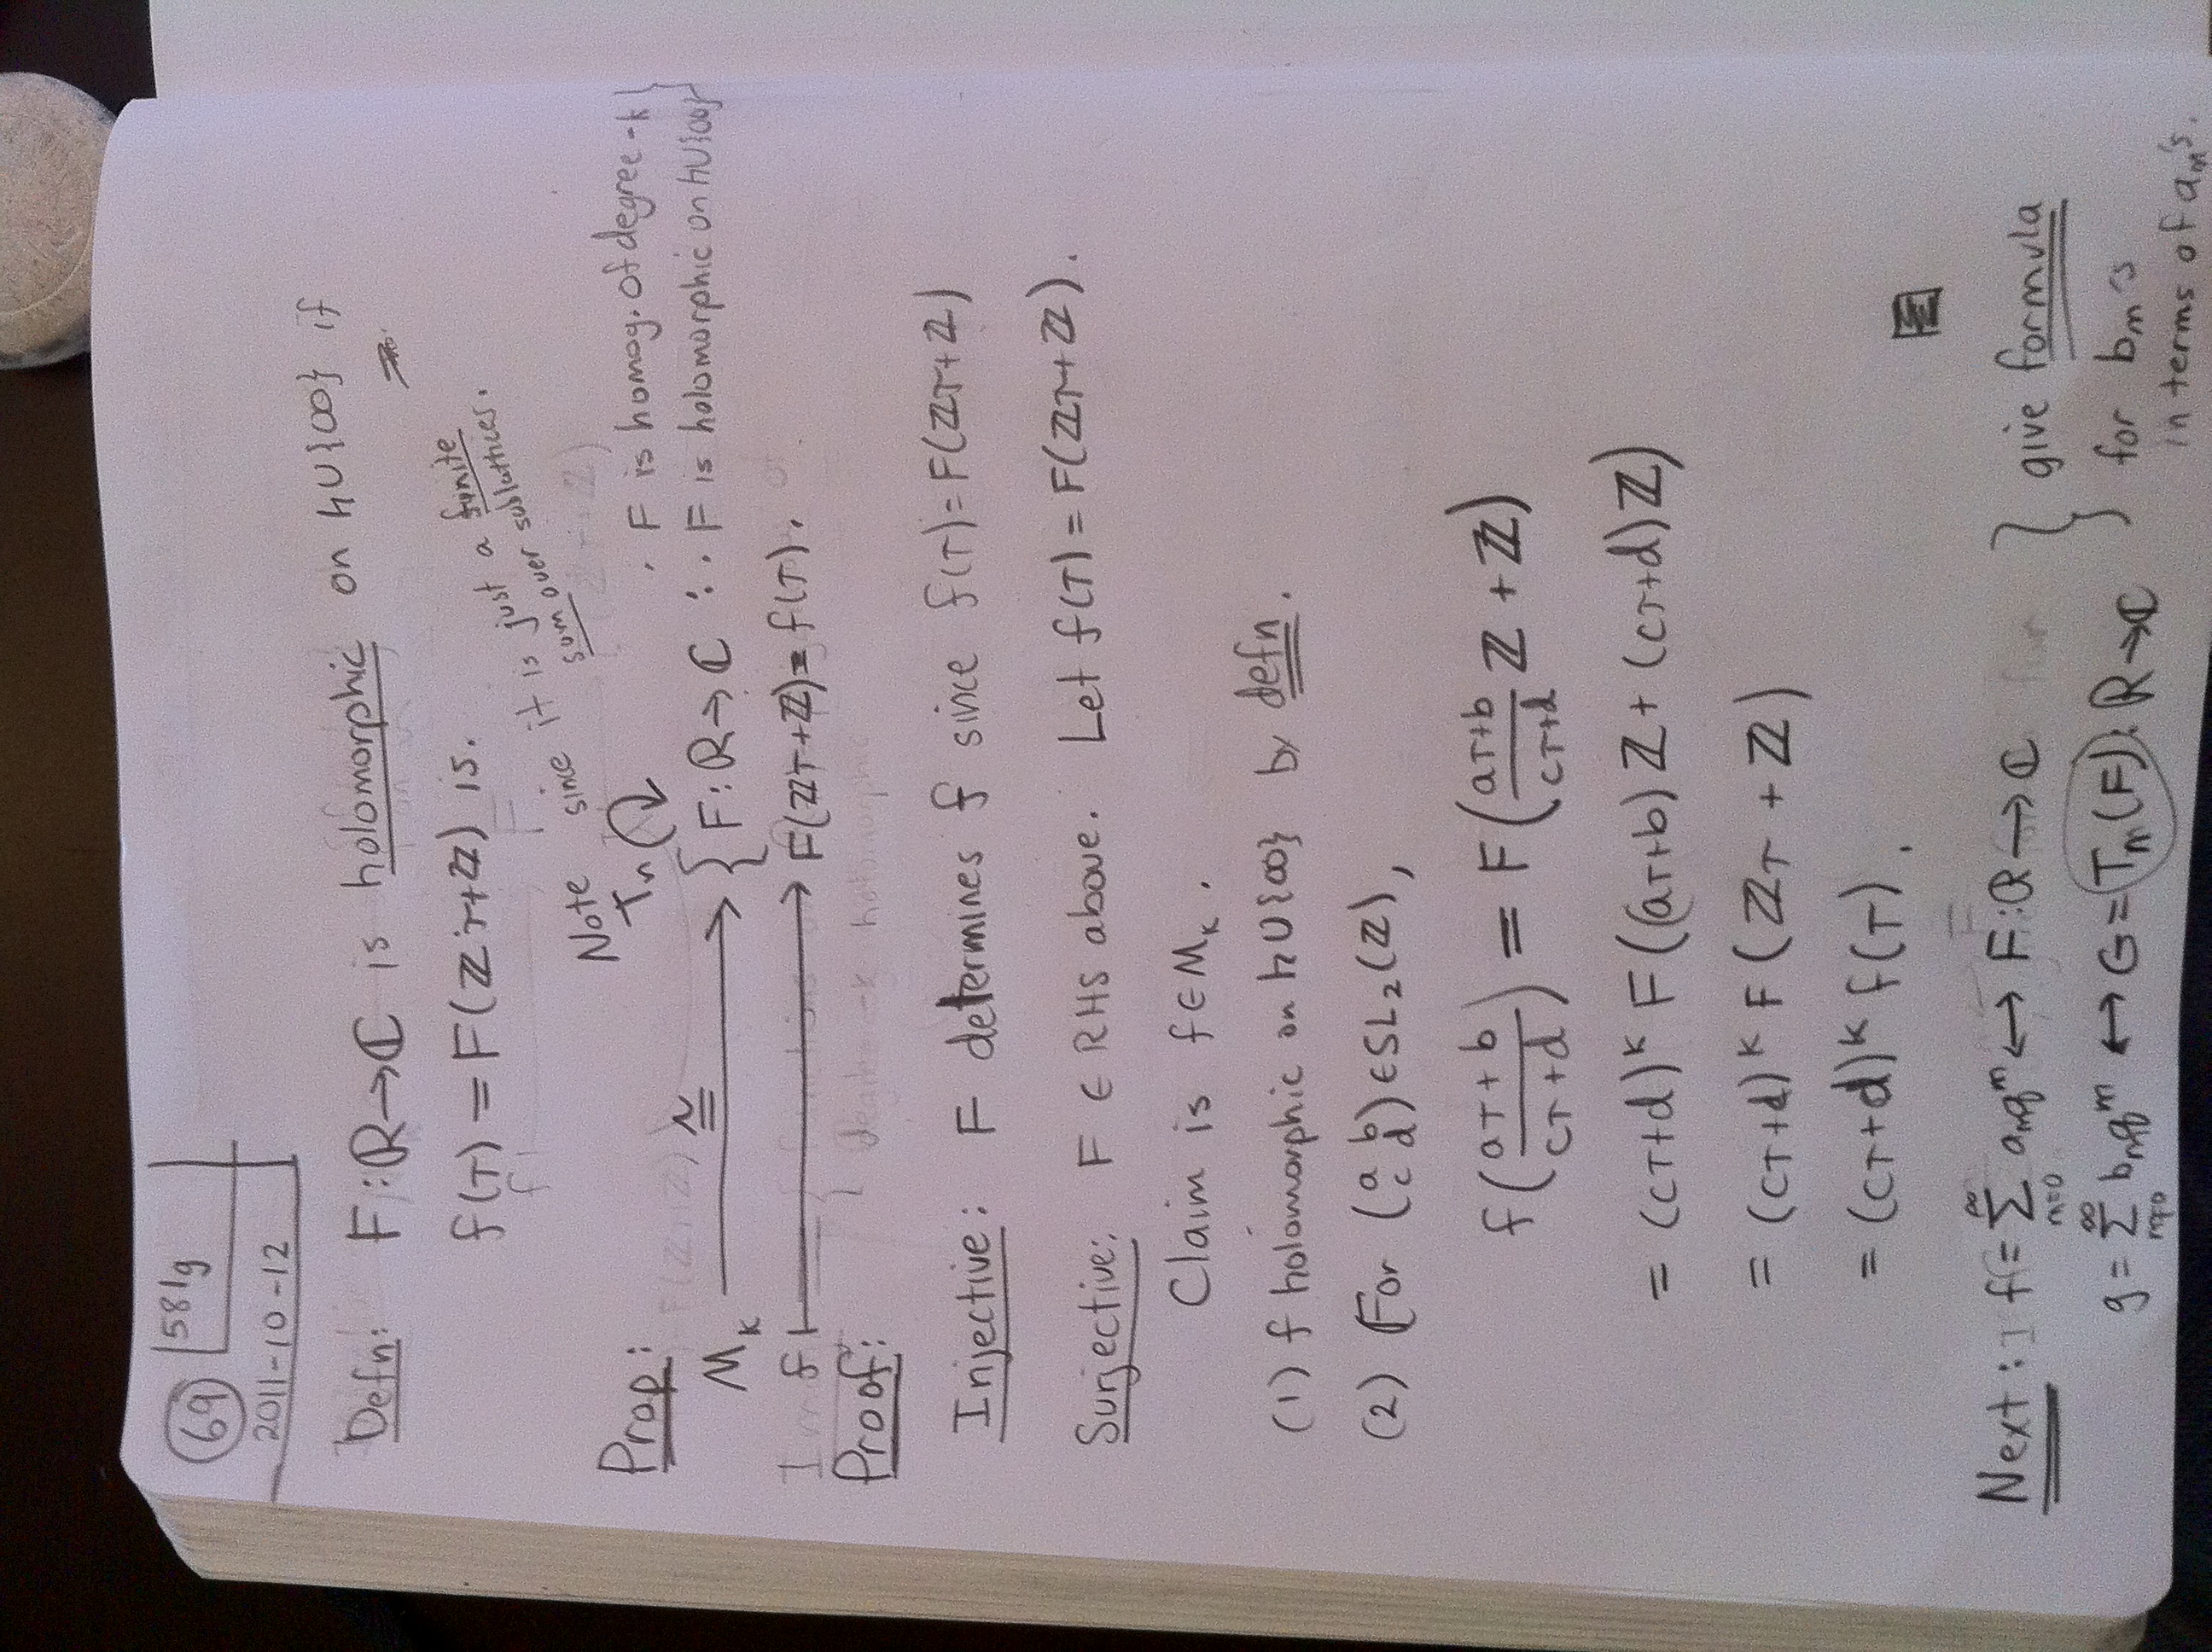 69 581g
2011-10-12
Defn: F: R→ℂ is holomorphic on h∪{∞} if
f(τ) = F(ℤτ+ℤ) is.
Note since it is just a finite
Tn sum over sublattices.
Prop: F is homog. of degree -k
M_k ≅ → { F: R→ℂ : F is holomorphic on h∪{∞} }
f ↦ F(ℤτ+ℤ) = f(τ).
Proof:
Injective: F determines f since f(τ) = F(ℤτ+ℤ)
Surjective: F ∈ RHS above. Let f(τ) = F(ℤτ+ℤ).
Claim is f ∈ M_k.
(1) f holomorphic on h∪{∞} by defn.
(2) For (a b; c d) ∈ SL₂(ℤ),
f((aτ+b)/(cτ+d)) = F((aτ+b)/(cτ+d) ℤ + ℤ)
= (cτ+d)^k F((aτ+b)ℤ + (cτ+d)ℤ)
= (cτ+d)^k F(ℤτ + ℤ)
= (cτ+d)^k f(τ).
Next: If f = ∑_{m=0}^∞ a_m q^m ↔ F: R→ℂ } give formula
g = ∑_{m=0}^∞ b_m q^m ↔ G = T_n(F): R→ℂ } for b_m's
in terms of a_m's.